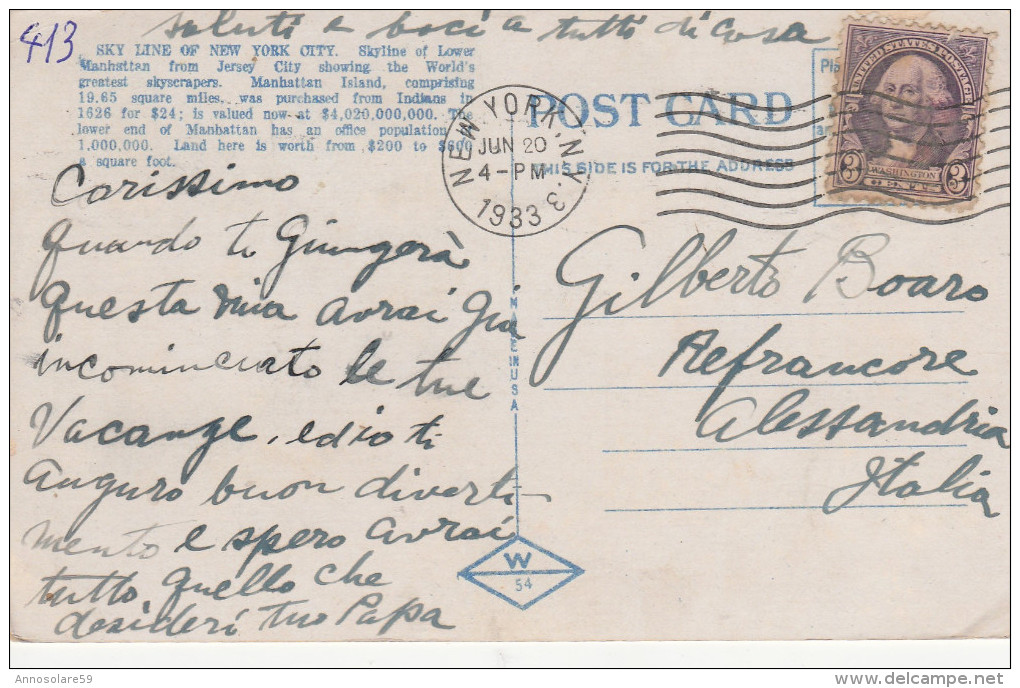 413
saluti e baci a tutti di casa
SKY LINE OF NEW YORK CITY. Skyline of Lower
Manhattan from Jersey City showing the World's
greatest skyscrapers. Manhattan Island, comprising
19.65 square miles, was purchased from Indians in
1626 for $24; is valued now at $4,020,000,000. The
lower end of Manhattan has an office population
1,000,000. Land here is worth from $200 to $600
a square foot.
Carissimo
quando ti Giungerà
questa mia avrai Gia
incominciato le tue
Vacanze, ed io ti
Auguro buon diverti
mento e spero avrai
tutto quello che
desideri tuo Papa
NEW YORK, N.Y.
JUN 20
4-PM
1933
3
POST CARD
THIS SIDE IS FOR THE ADDRESS
UNITED STATES POSTAGE
WASHINGTON
3 CENTS 3
MADE IN USA
W
54
Gilberto Boaro
Refrancore
Alessandria
Italia
Annosolare59
delcampe.net